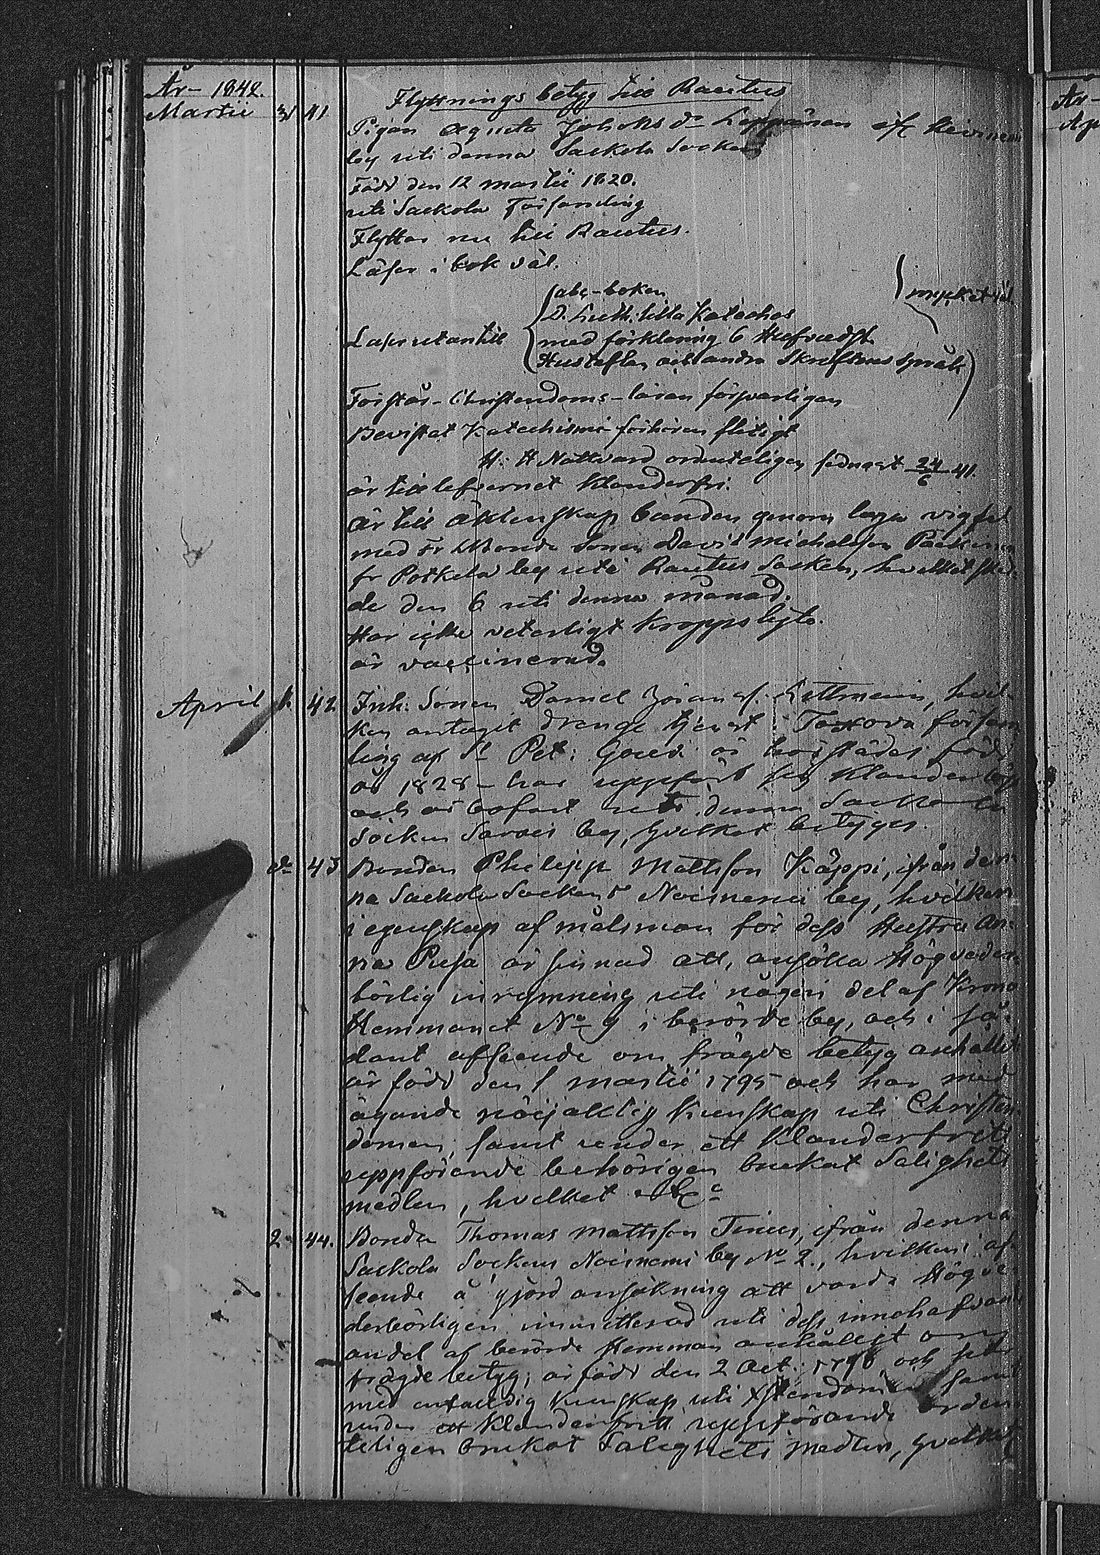 År 1842
Martii 31 41 Flyttnings betyg till Rautus
Pigan Agneta Johans dr Leppänen af
by uti denna Sackola Socken
Född den 12 martii 1820.
uti Sackola Församling
Flyttar nu till Rautus.
Läser i bok väl.
abc-boken
D. Luth. lilla Kateches
mycket väl
Läser utantill med förklaring 6 Hufvudst.
Hustaflan och andra Skriftens språk
Förstår Christendoms-läran försvarligen
Bevistat Katechismi förhören flitigt
H: H Nattvard ordenteligen sednast 24/6 41.
är till lefvernet Klanderfri.
är till äktenskap bunden genom laga vigsel
med Bonde Sonen David Michelsson
fr Potkela by uti Rautus Socken, hvilket ske-
de den 6 uti denna månad.
Har icke veterligt Kroppslyte.
är vaccinerad.
April 42 Inh. Sonen Daniel Johan hvil-
ken antagit drenge tjenst i Toxova försam
ling af St Pet: Gouv: är härstädes född
år 1828 – har uppfört sig Klanderlöst
och är bofast uti denna Sackola
Socken by, hvilket betygas.
do 43 Bonden Philipp Mattsson Käppi, ifrån den-
na Sackola Sockens Noisniemi by, hvilken
i egenskap af målsman för dess Hustru An-
na Pusa är sinnad att, ansöka Högveder-
börlig inrymning uti någon del af Krono
Hemmanet No 9 i berörde by, och i så-
dant afseende om frägde betyg anhållit
är född den 1 martii 1795 och har med
ägande nöijaktig kunskap uti Christen-
domen, samt under ett Klanderfritt
uppförande behörigen brukat Salighets
medlen, hvilket &c
2 44. Bonden Thomas Mattsson Tinus, ifrån denna
Sackola Sockens Noisniemi by No 2, hvilken i af-
seende å gjord ansökning att varda Högve-
derbörligen immitterad uti dess innehafvande
andel af berörde Hemman anhållit om
frägdebetyg, är född den 2 Oct. och
med kunskap uti Xstendomen samt
under ett Klanderfritt uppförande orden
teligen brukat Salighets medlen, hvilket